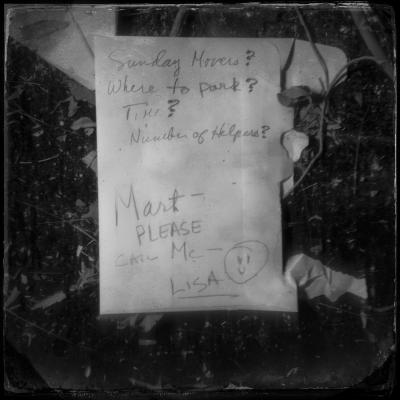 Sunday Movers?
Where to park?
Time?
Number of Helpers?
Mart —
PLEASE
CALL Me —
LISA